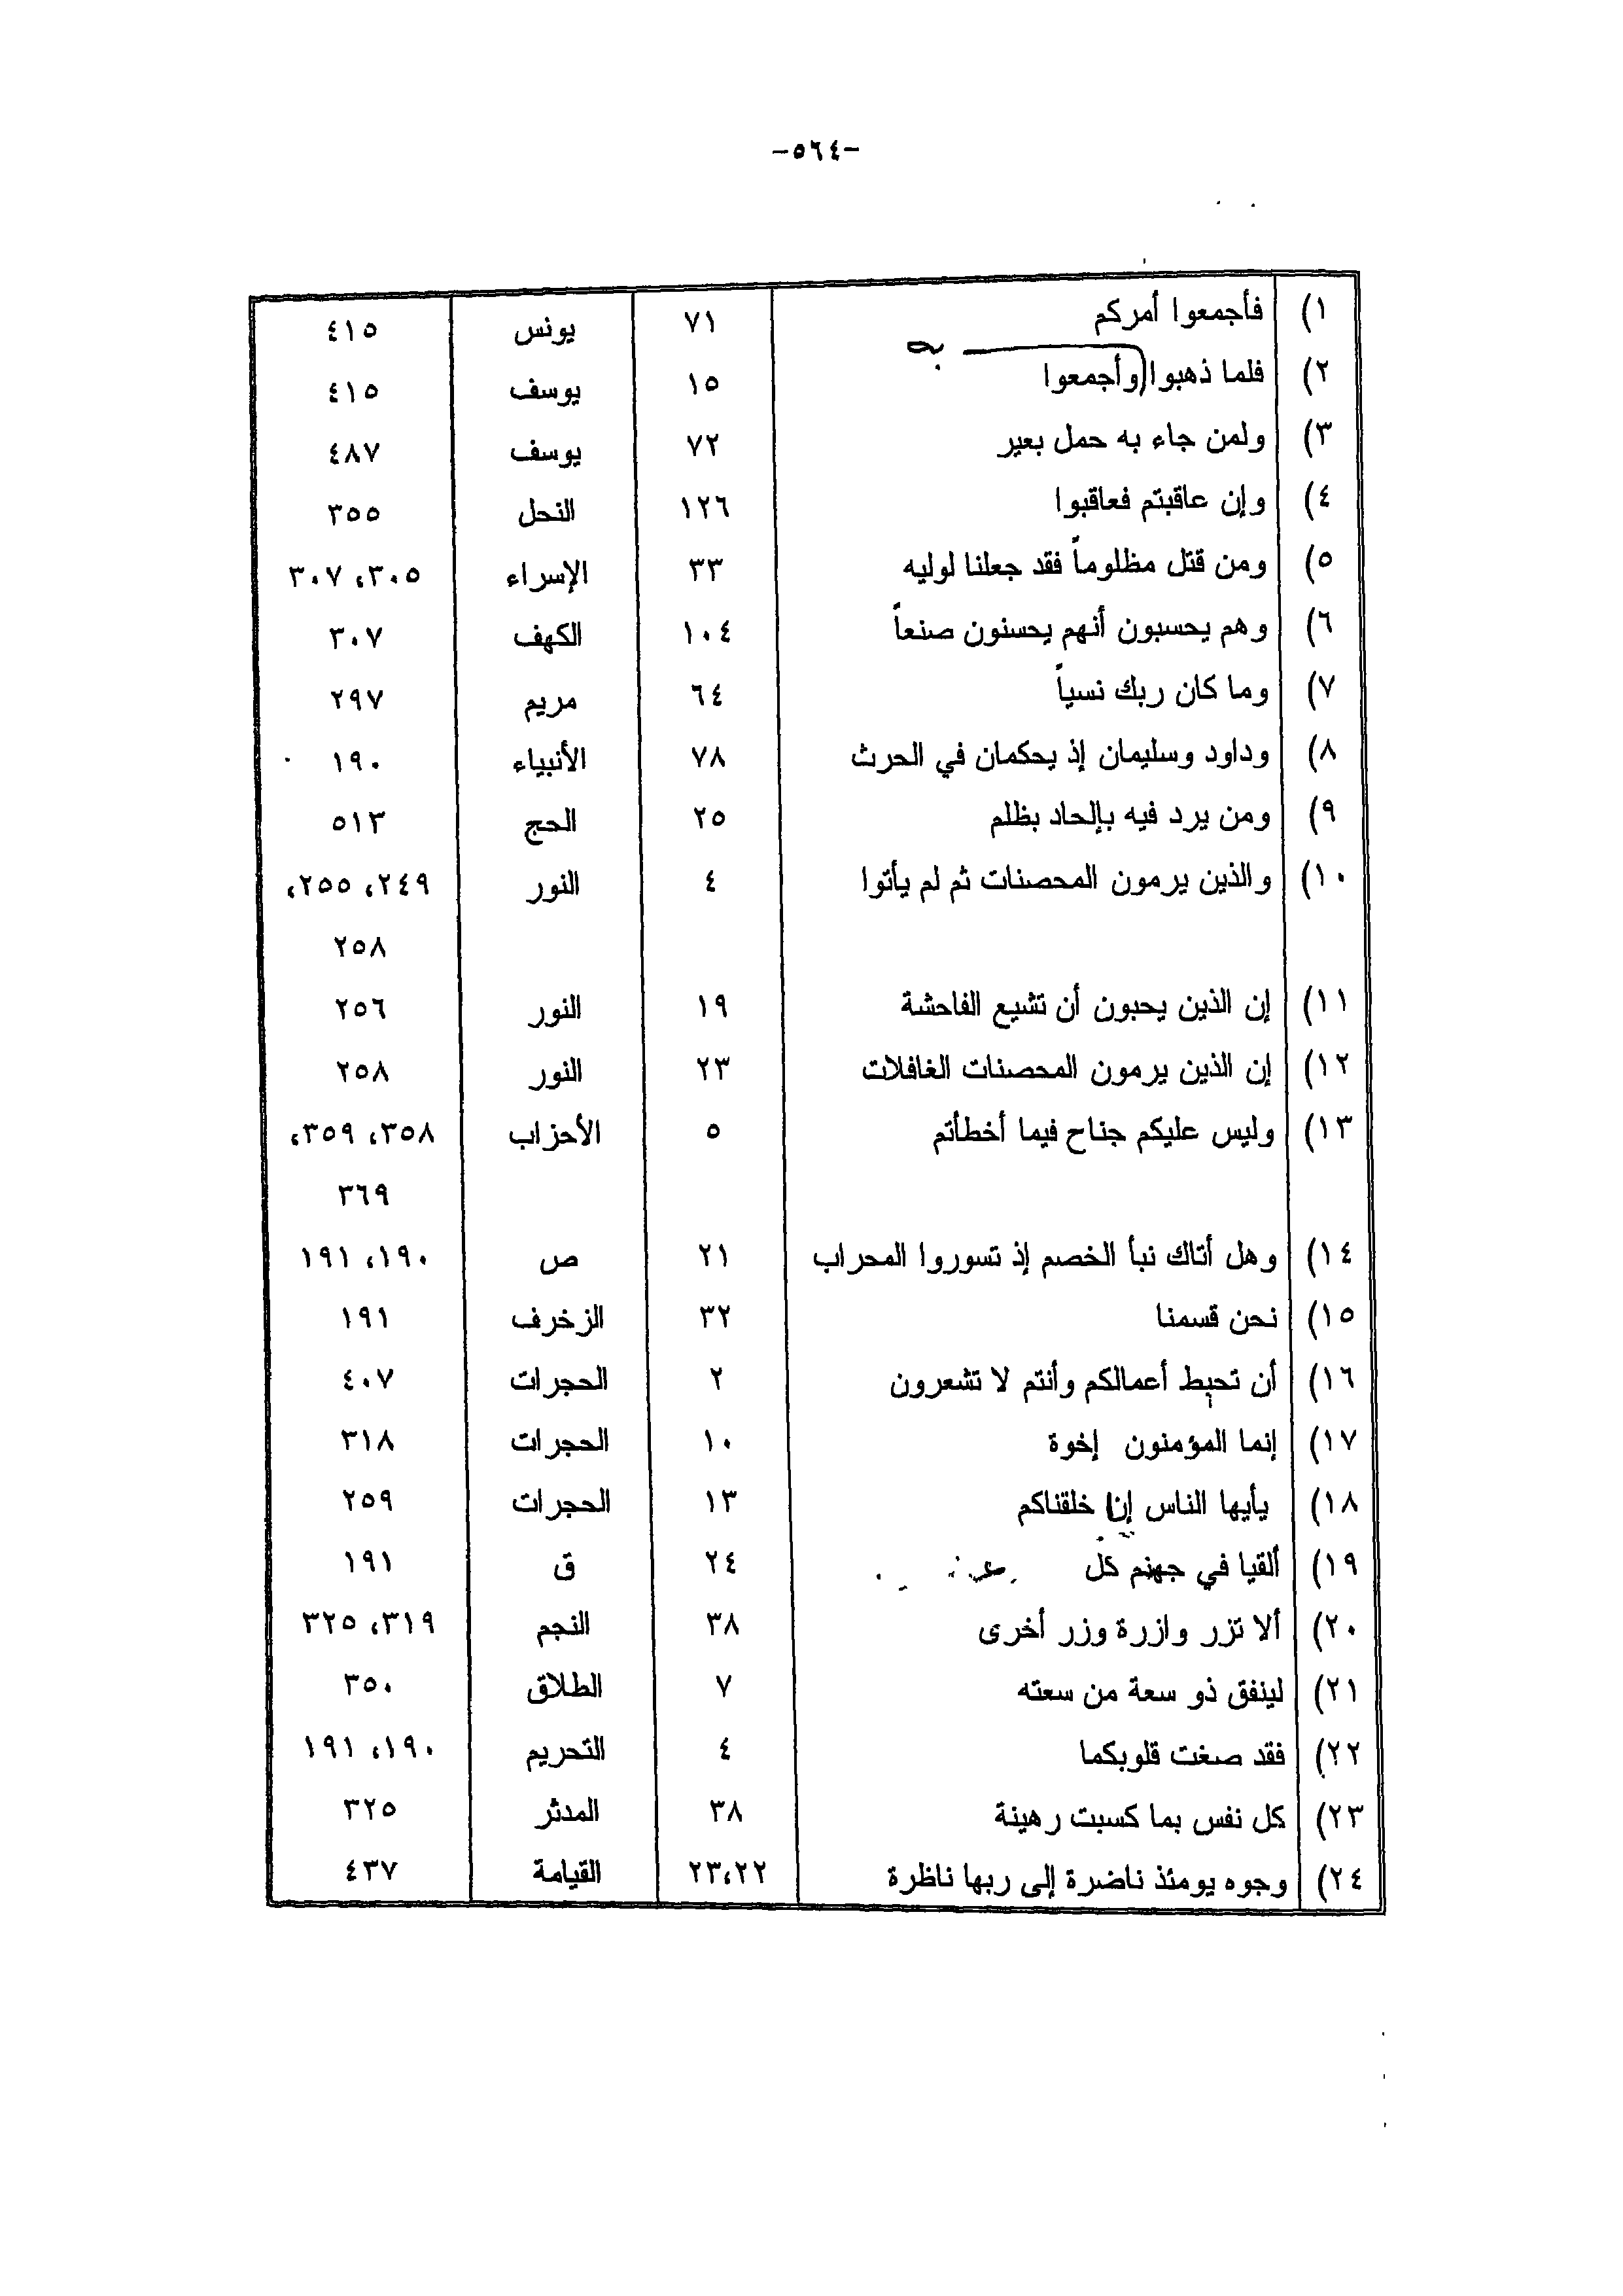 -٥٦٤-
١) فأجمعوا أمركم ٧١ يونس ٤١٥
به
٢) فلما ذهبوا وأجمعوا ١٥ يوسف ٤١٥
٣) ولمن جاء به حمل بعير ٧٢ يوسف ٤٨٧
٤) وإن عاقبتم فعاقبوا ١٢٦ النحل ٣٥٥
٥) ومن قتل مظلوماً فقد جعلنا لوليه ٣٣ الإسراء ٣٠٥، ٣٠٧
٦) وهم يحسبون أنهم يحسنون صنعاً ١٠٤ الكهف ٣٠٧
٧) وما كان ربك نسياً ٦٤ مريم ٢٩٧
٨) وداود وسليمان إذ يحكمان في الحرث ٧٨ الأنبياء ١٩٠
٩) ومن يرد فيه بإلحاد بظلم ٢٥ الحج ٥١٣
١٠) والذين يرمون المحصنات ثم لم يأتوا ٤ النور ٢٤٩، ٢٥٥،
٢٥٨
١١) إن الذين يحبون أن تشيع الفاحشة ١٩ النور ٢٥٦
١٢) إن الذين يرمون المحصنات الغافلات ٢٣ النور ٢٥٨
١٣) وليس عليكم جناح فيما أخطأتم ٥ الأحزاب ٣٥٨، ٣٥٩،
٣٦٩
١٤) وهل أتاك نبأ الخصم إذ تسوروا المحراب ٢١ ص ١٩٠، ١٩١
١٥) نحن قسمنا ٣٢ الزخرف ١٩١
١٦) أن تحبط أعمالكم وأنتم لا تشعرون ٢ الحجرات ٤٠٧
١٧) إنما المؤمنون إخوة ١٠ الحجرات ٣١٨
١٨) يأيها الناس إنا خلقناكم ١٣ الحجرات ٢٥٩
١٩) ألقيا في جهنم كل ٢٤ ق ١٩١
٢٠) ألا تزر وازرة وزر أخرى ٣٨ النجم ٣١٩، ٣٢٥
٢١) لينفق ذو سعة من سعته ٧ الطلاق ٣٥٠
٢٢) فقد صغت قلوبكما ٤ التحريم ١٩٠، ١٩١
٢٣) كل نفس بما كسبت رهينة ٣٨ المدثر ٣٢٥
٢٤) وجوه يومئذ ناضرة إلى ربها ناظرة ٢٣،٢٢ القيامة ٤٣٧